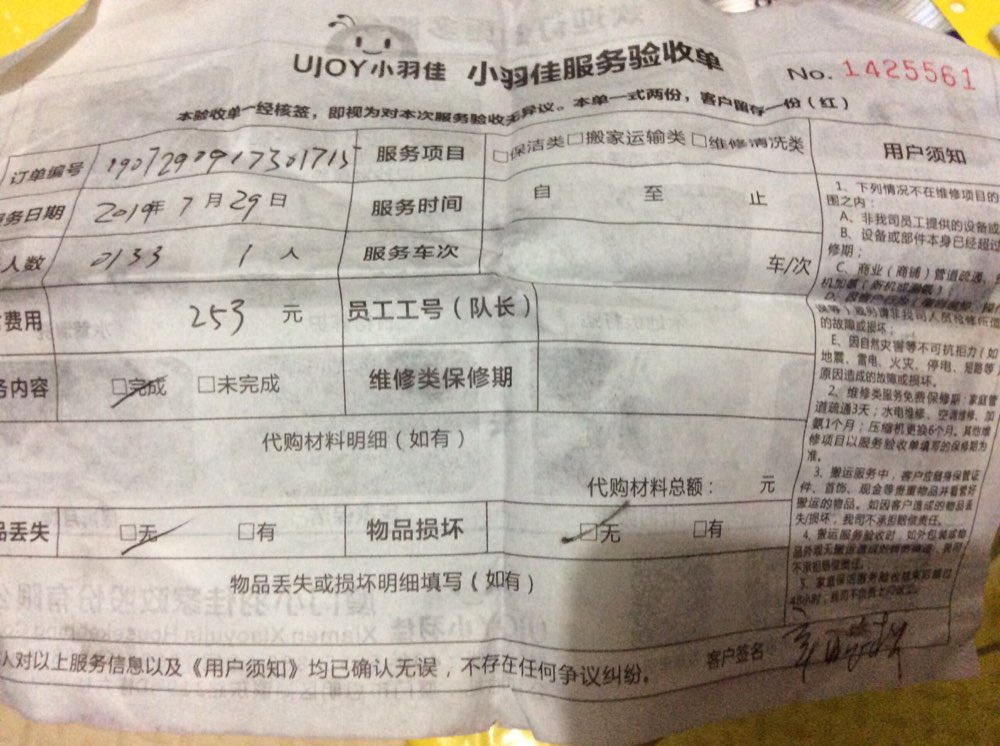 UJOY小羽佳 小羽佳服务验收单 No. 1425561
本验收单一经核签，即视为对本次服务验收无异议。本单一式两份，客户留存一份（红）
订单编号 190729091730171 服务项目 □保洁类□搬家运输类□维修清洗类 用户须知
务日期 2019年 7月 29日 服务时间 自 至 止
人数 0133 1 人 服务车次 车/次
费用 253 元 员工工号（队长）
务内容 □完成 □未完成 维修类保修期
代购材料明细（如有）
代购材料总额： 元
品丢失 □无 □有 物品损坏 □无 □有
物品丢失或损坏明细填写（如有）
人对以上服务信息以及《用户须知》均已确认无误，不存在任何争议纠纷。 客户签名：
1、下列情况不在维修项目的
围之内：
A、非我司员工提供的设备或
B、设备或部件本身已经超过
修期；
C、商业（商铺）管道疏通、
的故障或损坏；
E、因自然灾害等不可抗拒力（如
地震、雷电、火灾、停电、短路等）
原因造成的故障或损坏。
2、维修类服务免费保修期：家庭管
道疏通3天；水电维修、空调维修、加
氨1个月；压缩机更换6个月。其他维
修项目以服务验收单填写的保修期为
准。
3、搬运服务中，客户应随身保管证
件、首饰、现金等贵重物品并看管好
搬运的物品。如因客户造成的物品丢
失/损坏，我司不承担赔偿责任。
4、搬运服务验收时，如外包装或物
不承担赔偿责任。